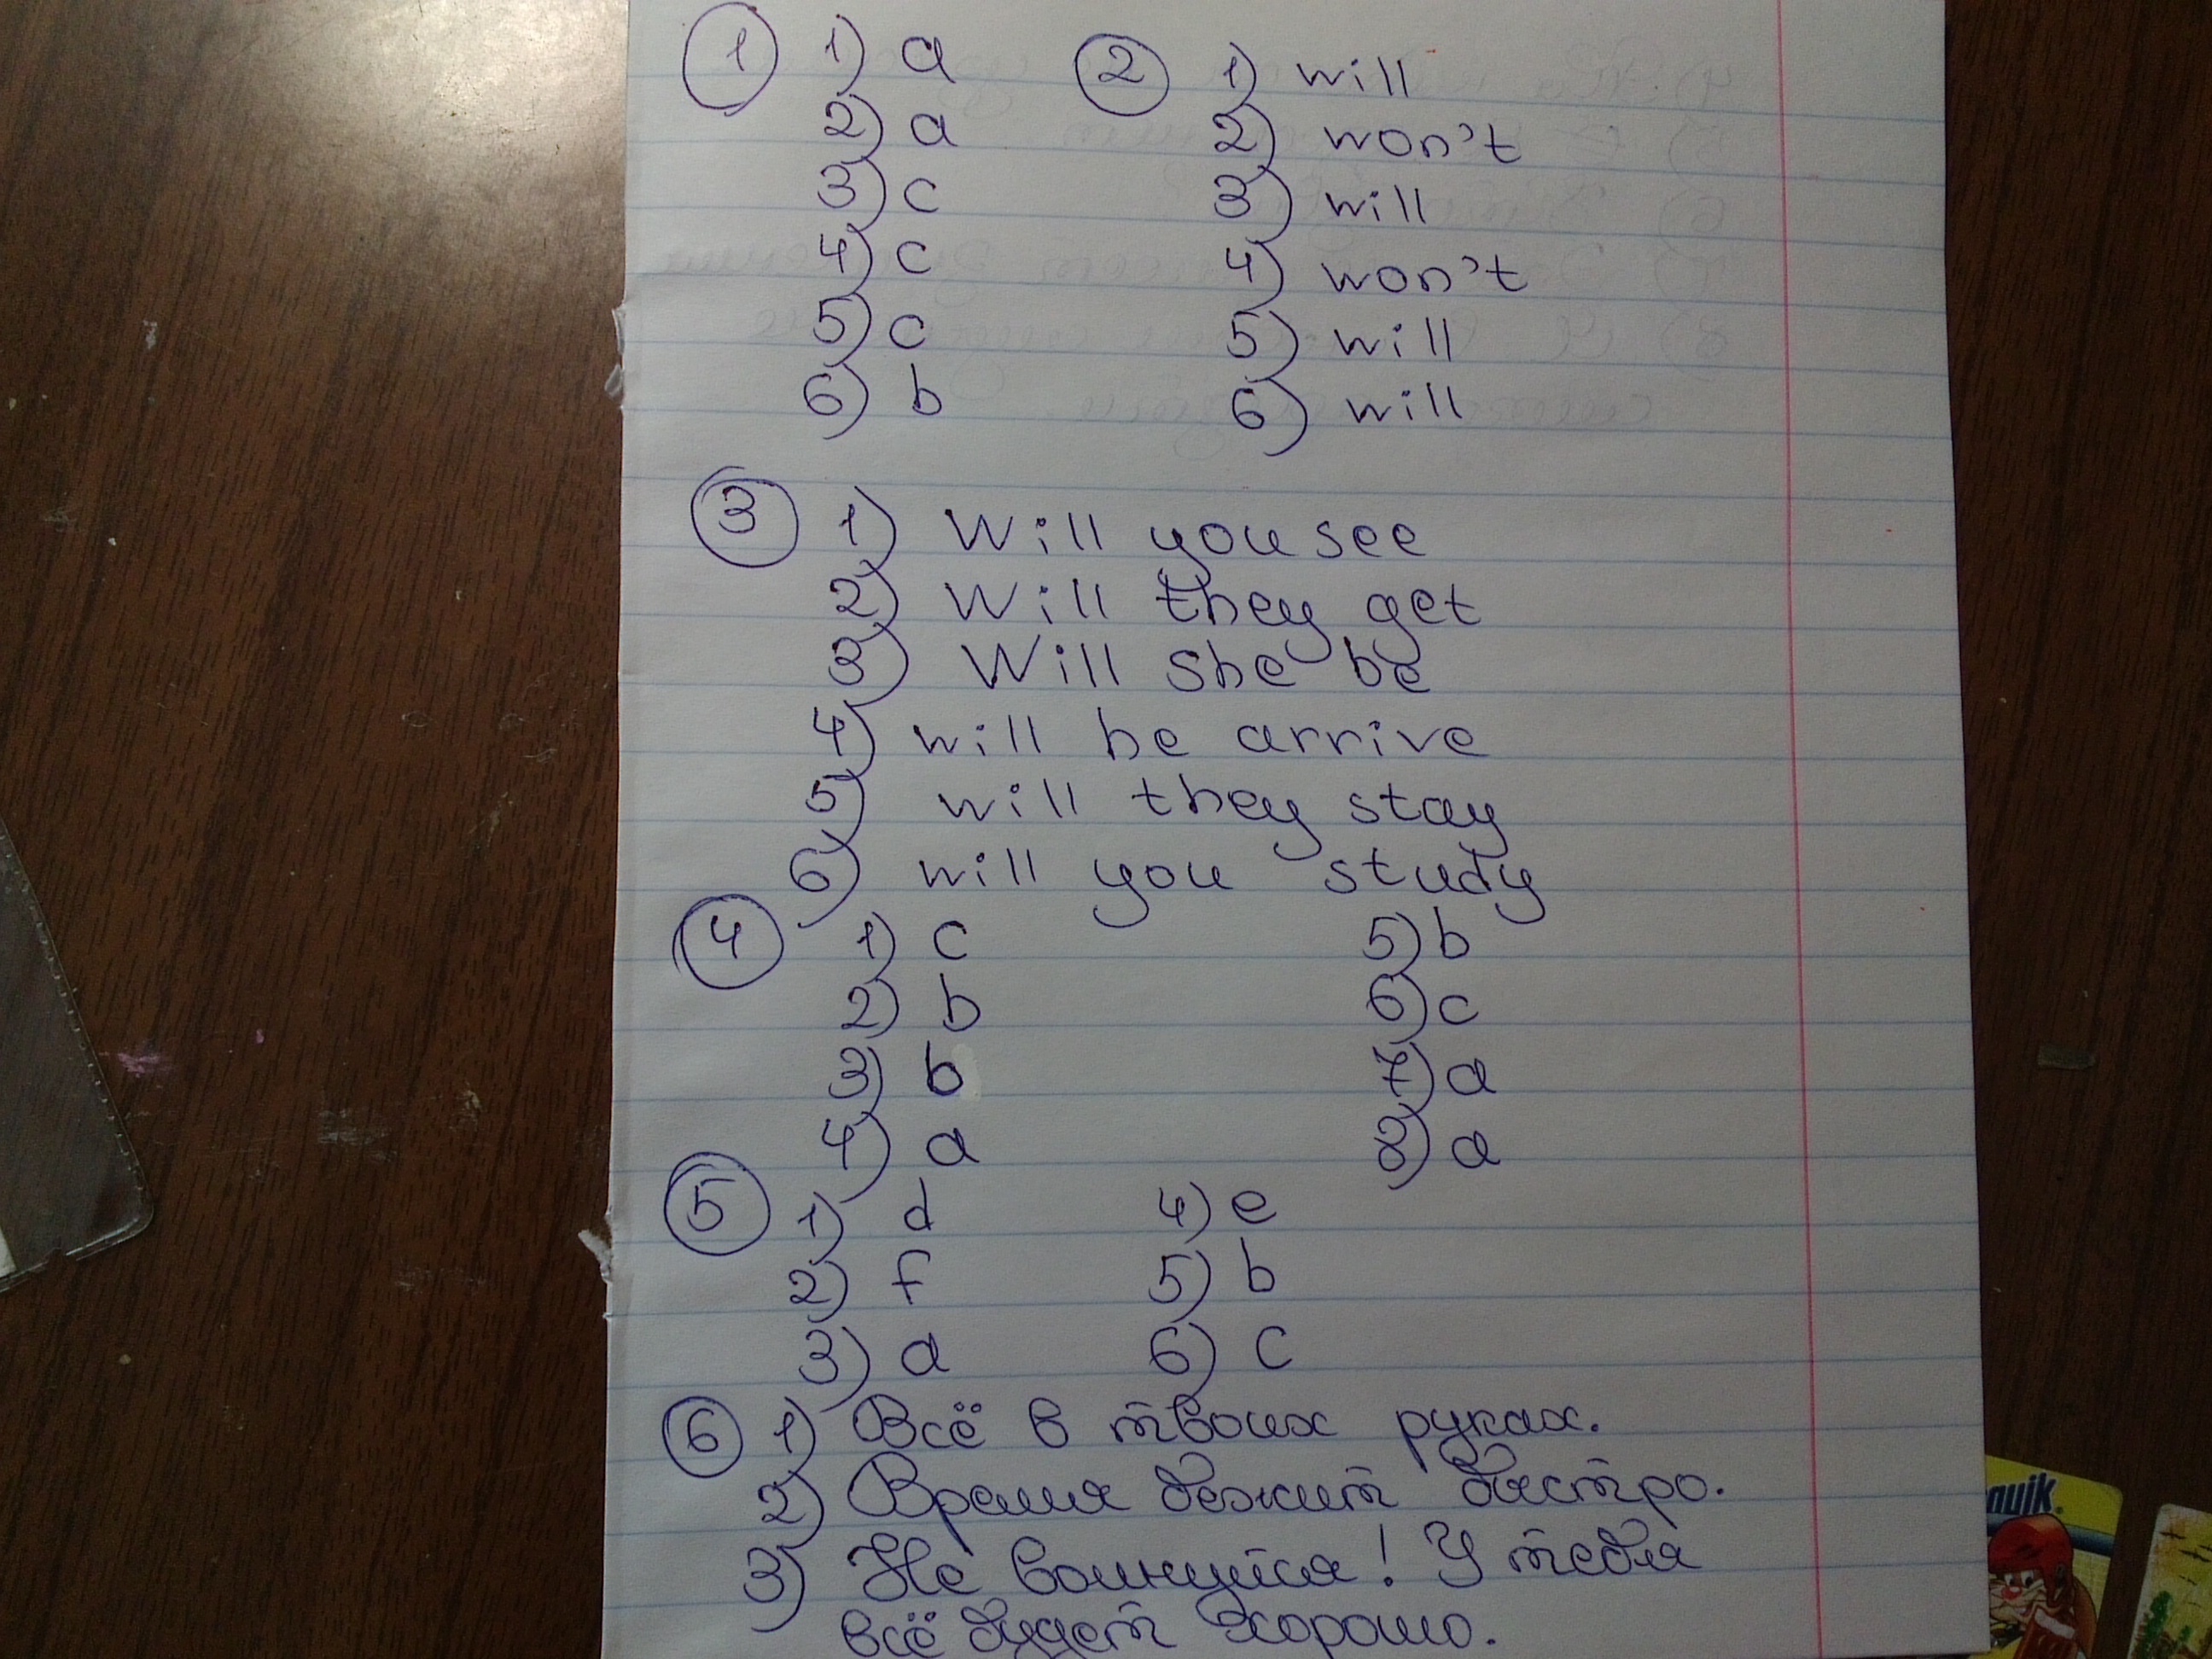 1 1) a
2) a
3) c
4) c
5) c
6) b
2 1) will
2) won't
3) will
4) won't
5) will
6) will
3 1) Will you see
2) Will they get
3) Will she be
4) will he arrive
5) will they stay
6) will you study
4 1) c
2) b
3) b
4) a
5) b
6) c
7) a
8) a
5 1) d
2) f
3) a
4) e
5) b
6) c
6 1) Всё в твоих руках.
2) Время бежит быстро.
3) Не волнуйся! У тебя
всё будет хорошо.